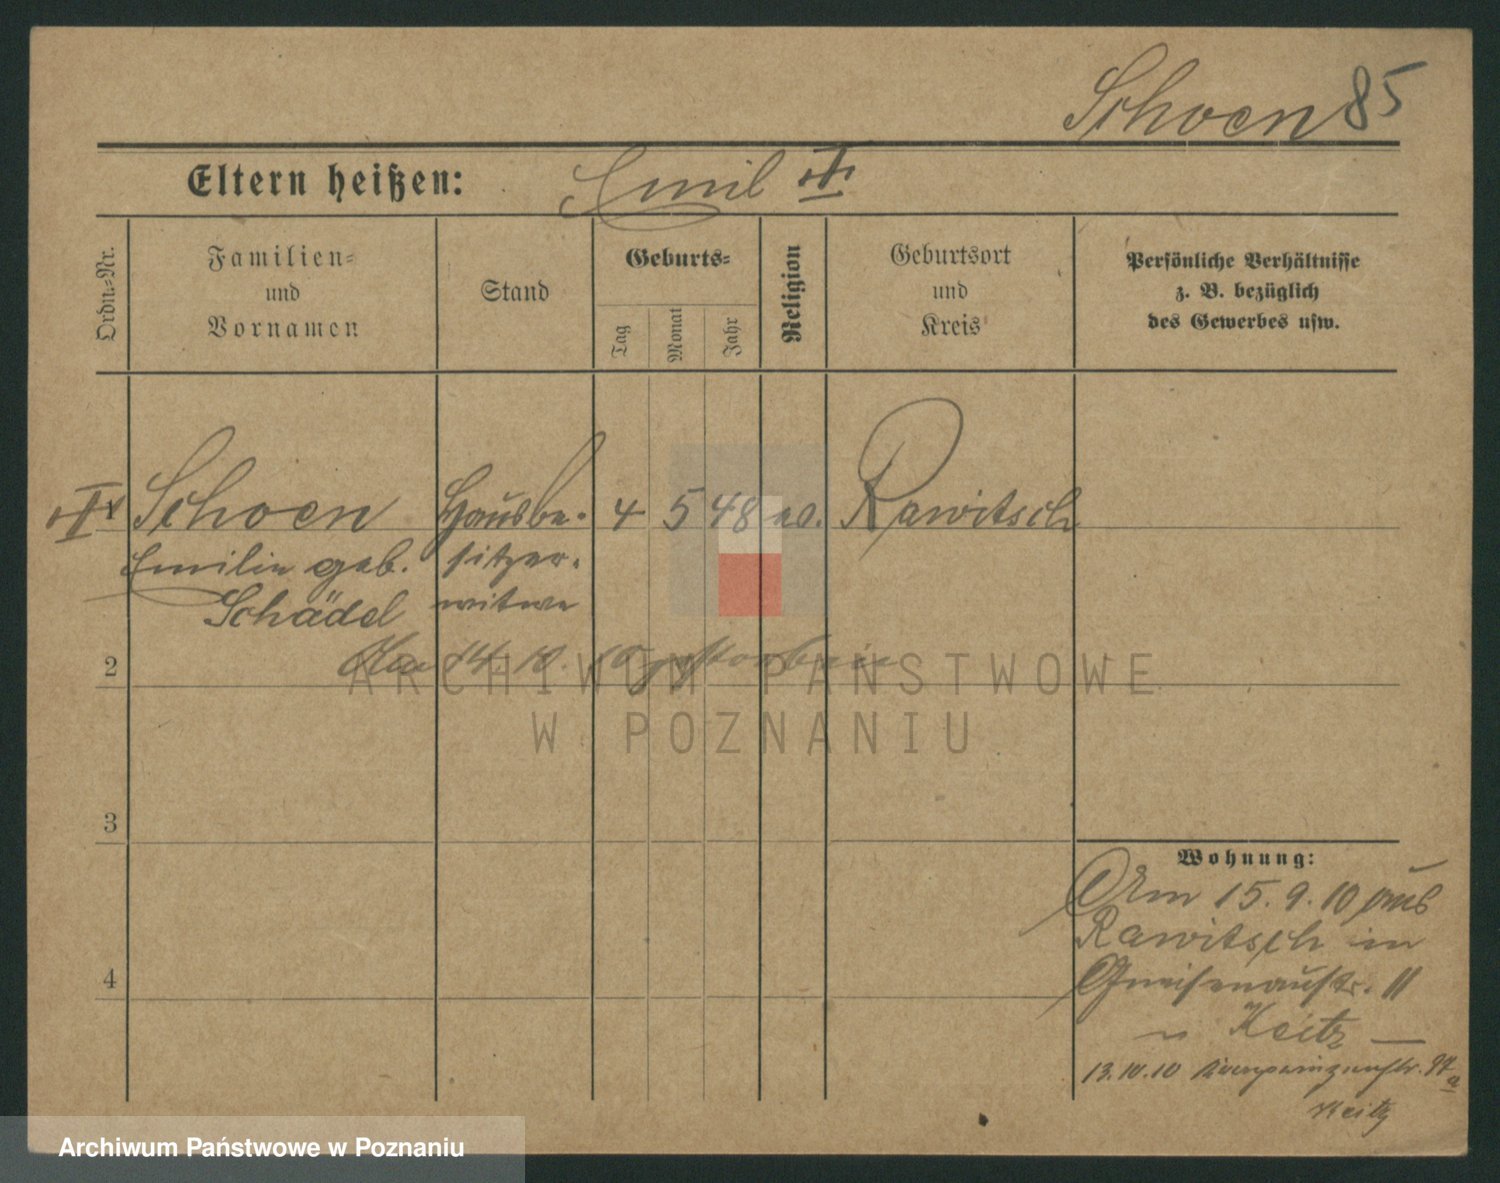 Schoen 85
Eltern heißen: Emil
Ordn.=Nr.
Familien=
und
Vornamen
Stand
Geburts=
Tag
Monat
Jahr
Religion
Geburtsort
und
Kreis
Persönliche Verhältnisse
z. B. bezüglich
des Gewerbes usw.
1 Schoen Hausbe- 4 5 48 ev. Rawitsch
Emilie geb. sitzer-
Schädel witwe
2 Am 14. 10. 10 gestorben
3
4
Wohnung:
Am 15. 9. 10 aus
Rawitsch in
Gneisenaustr. 11
Keitz
13.10.10 Kronprinzenstr.
Keitz
ARCHIWUM PAŃSTWOWE
W POZNANIU
Archiwum Państwowe w Poznaniu